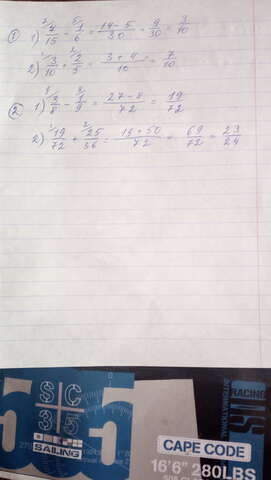 ① 1) ²4/15 - ⁵1/6 = 14-5/30 = 9/30 = 3/10
2) ¹3/10 + ²2/5 = 3+4/10 = 7/10
② 1) ⁹3/8 - ⁸1/9 = 27-8/72 = 19/72
2) ¹19/72 + ²25/36 = 19+50/72 = 69/72 = 23/24
SC
35
SAILING
RACING
INTERNATIONAL
CAPE CODE
16'6" 280LBS